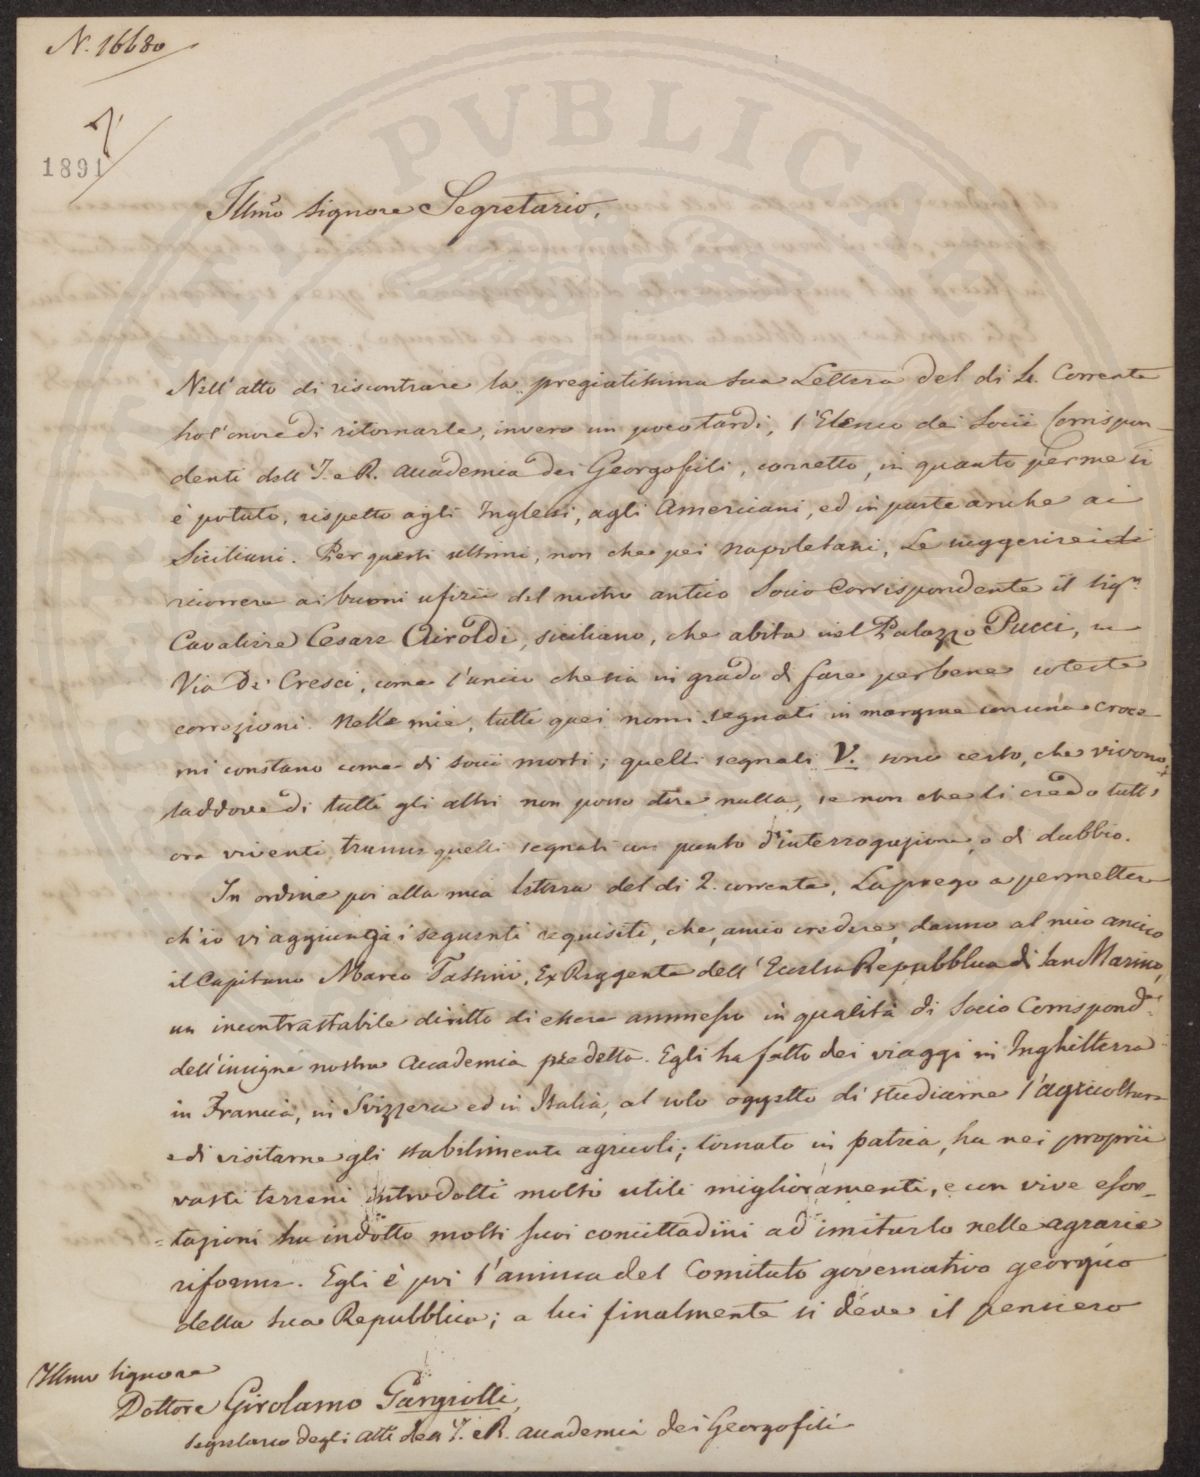 N. 16680
1891
Illmo Signore Segretario,
Nell'atto di riscontrare la pregiatissima sua Lettera del di 4. Corrente
ho l'onore di ritornarle, invero un poco tardi, l'Elenco dei Socii Corrispon-
denti dell'I. e R. Accademia dei Georgofili, corretto, in quanto per me si
è potuto, rispetto agli Inglesi, agli Americani, ed in parte anche ai
Siciliani. Per questi ultimi, non che pei Napoletani, Le suggerirei di
ricorrere ai buoni ufizii del nostro antico Socio Corrispondente il Sigr.
Cavaliere Cesare Airoldi, siciliano, che abita nel Palazzo Pucci, in
Via De' Cresci, come l'unico che sia in grado di fare per bene coteste
correzioni. Nelle mie, tutti quei nomi segnati in margine con una croce
mi constano come di socii morti; quelli segnati V. sono certo, che vivono;
laddove di tutti gli altri non posso dire nulla, se non che li credo tutt'
ora viventi, tranne quelli segnati con punto d'interrogazione, o di dubbio.
In ordine poi alla mia lettera del di 2. corrente, La prego a permettere
ch'io vi aggiunga i seguenti requisiti, che, amio credere, danno al mio amico
il Capitano Marco Tassini, Ex Reggente dell'Eccelsa Repubblica di San Marino,
un incontrastabile diritto di essere ammesso in qualità di Socio Corrispond.te
dell'insigne nostra Accademia predetta. Egli ha fatto dei viaggi in Inghilterra
in Francia, in Svizzera ed in Italia, al solo oggetto di studiarne l'agricoltura
e di visitarne gli stabilimenti agricoli; tornato in patria, ha nei proprii
vasti terreni introdotti molti utili miglioramenti, e con vive esor-
=tazioni ha indotto molti suoi concittadini ad imitarlo nelle agrarie
riforme. Egli è poi l'anima del Comitato governativo georgico
della sua Repubblica; a lui finalmente si deve il pensiero
Illmo Signore
Dottore Girolamo Gargiolli,
Segretario degli Atti della I. e R. Accademia dei Georgofili